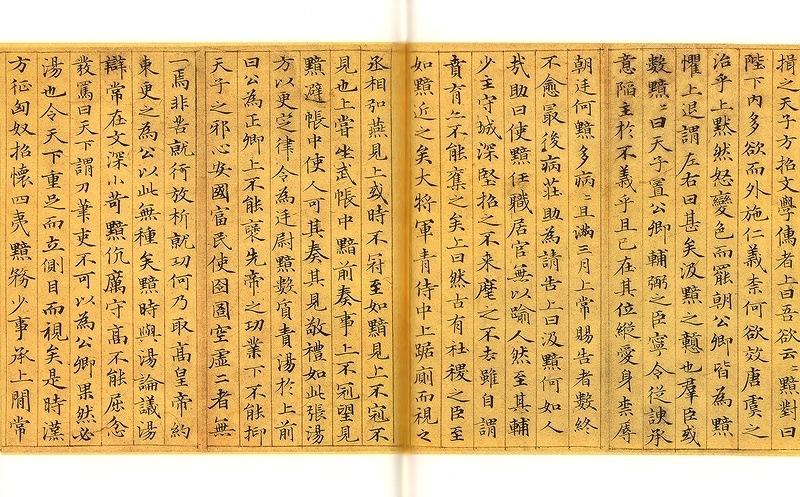 揖之天子方招文學儒者上曰吾欲云〻黯對曰
陛下內多欲而外施仁義柰何欲效唐虞之
治乎上黙然怒變色而罷朝公卿皆為黯
懼上退謂左右曰甚矣汲黯之戇也羣臣或
數黯〻曰天子置公卿輔弼之臣寧令從諛承
意陷主於不義乎且已在其位縱愛身柰辱
朝廷何黯多病〻且滿三月上常賜告者數終
不愈最後病莊助為請告上曰汲黯何如人
哉助曰使黯任職居官無以踰人然至其輔
少主守城深堅招之不來麾之不去雖自謂
賁育亦不能奪之矣上曰然古有社稷之臣至
如黯近之矣大將軍青侍中上踞廁而視之
丞相弘燕見上或時不冠至如黯見上不冠不
見也上嘗坐武帳中黯前奏事上不冠望見
黯避帳中使人可其奏其見敬禮如此張湯
方以更定律令為廷尉黯數質責湯於上前
曰公為正卿上不能襃先帝之功業下不能抑
天子之邪心安國富民使囹圄空虛二者無
一焉非苦就行放析就功何乃取高皇帝約
束更之為公以此無種矣黯時與湯論議湯
辯常在文深小苛黯伉厲守高不能屈忿
發罵曰天下謂刀筆吏不可以為公卿果然必
湯也令天下重足而立側目而視矣是時漢
方征匈奴招懷四夷黯務少事承上閒常